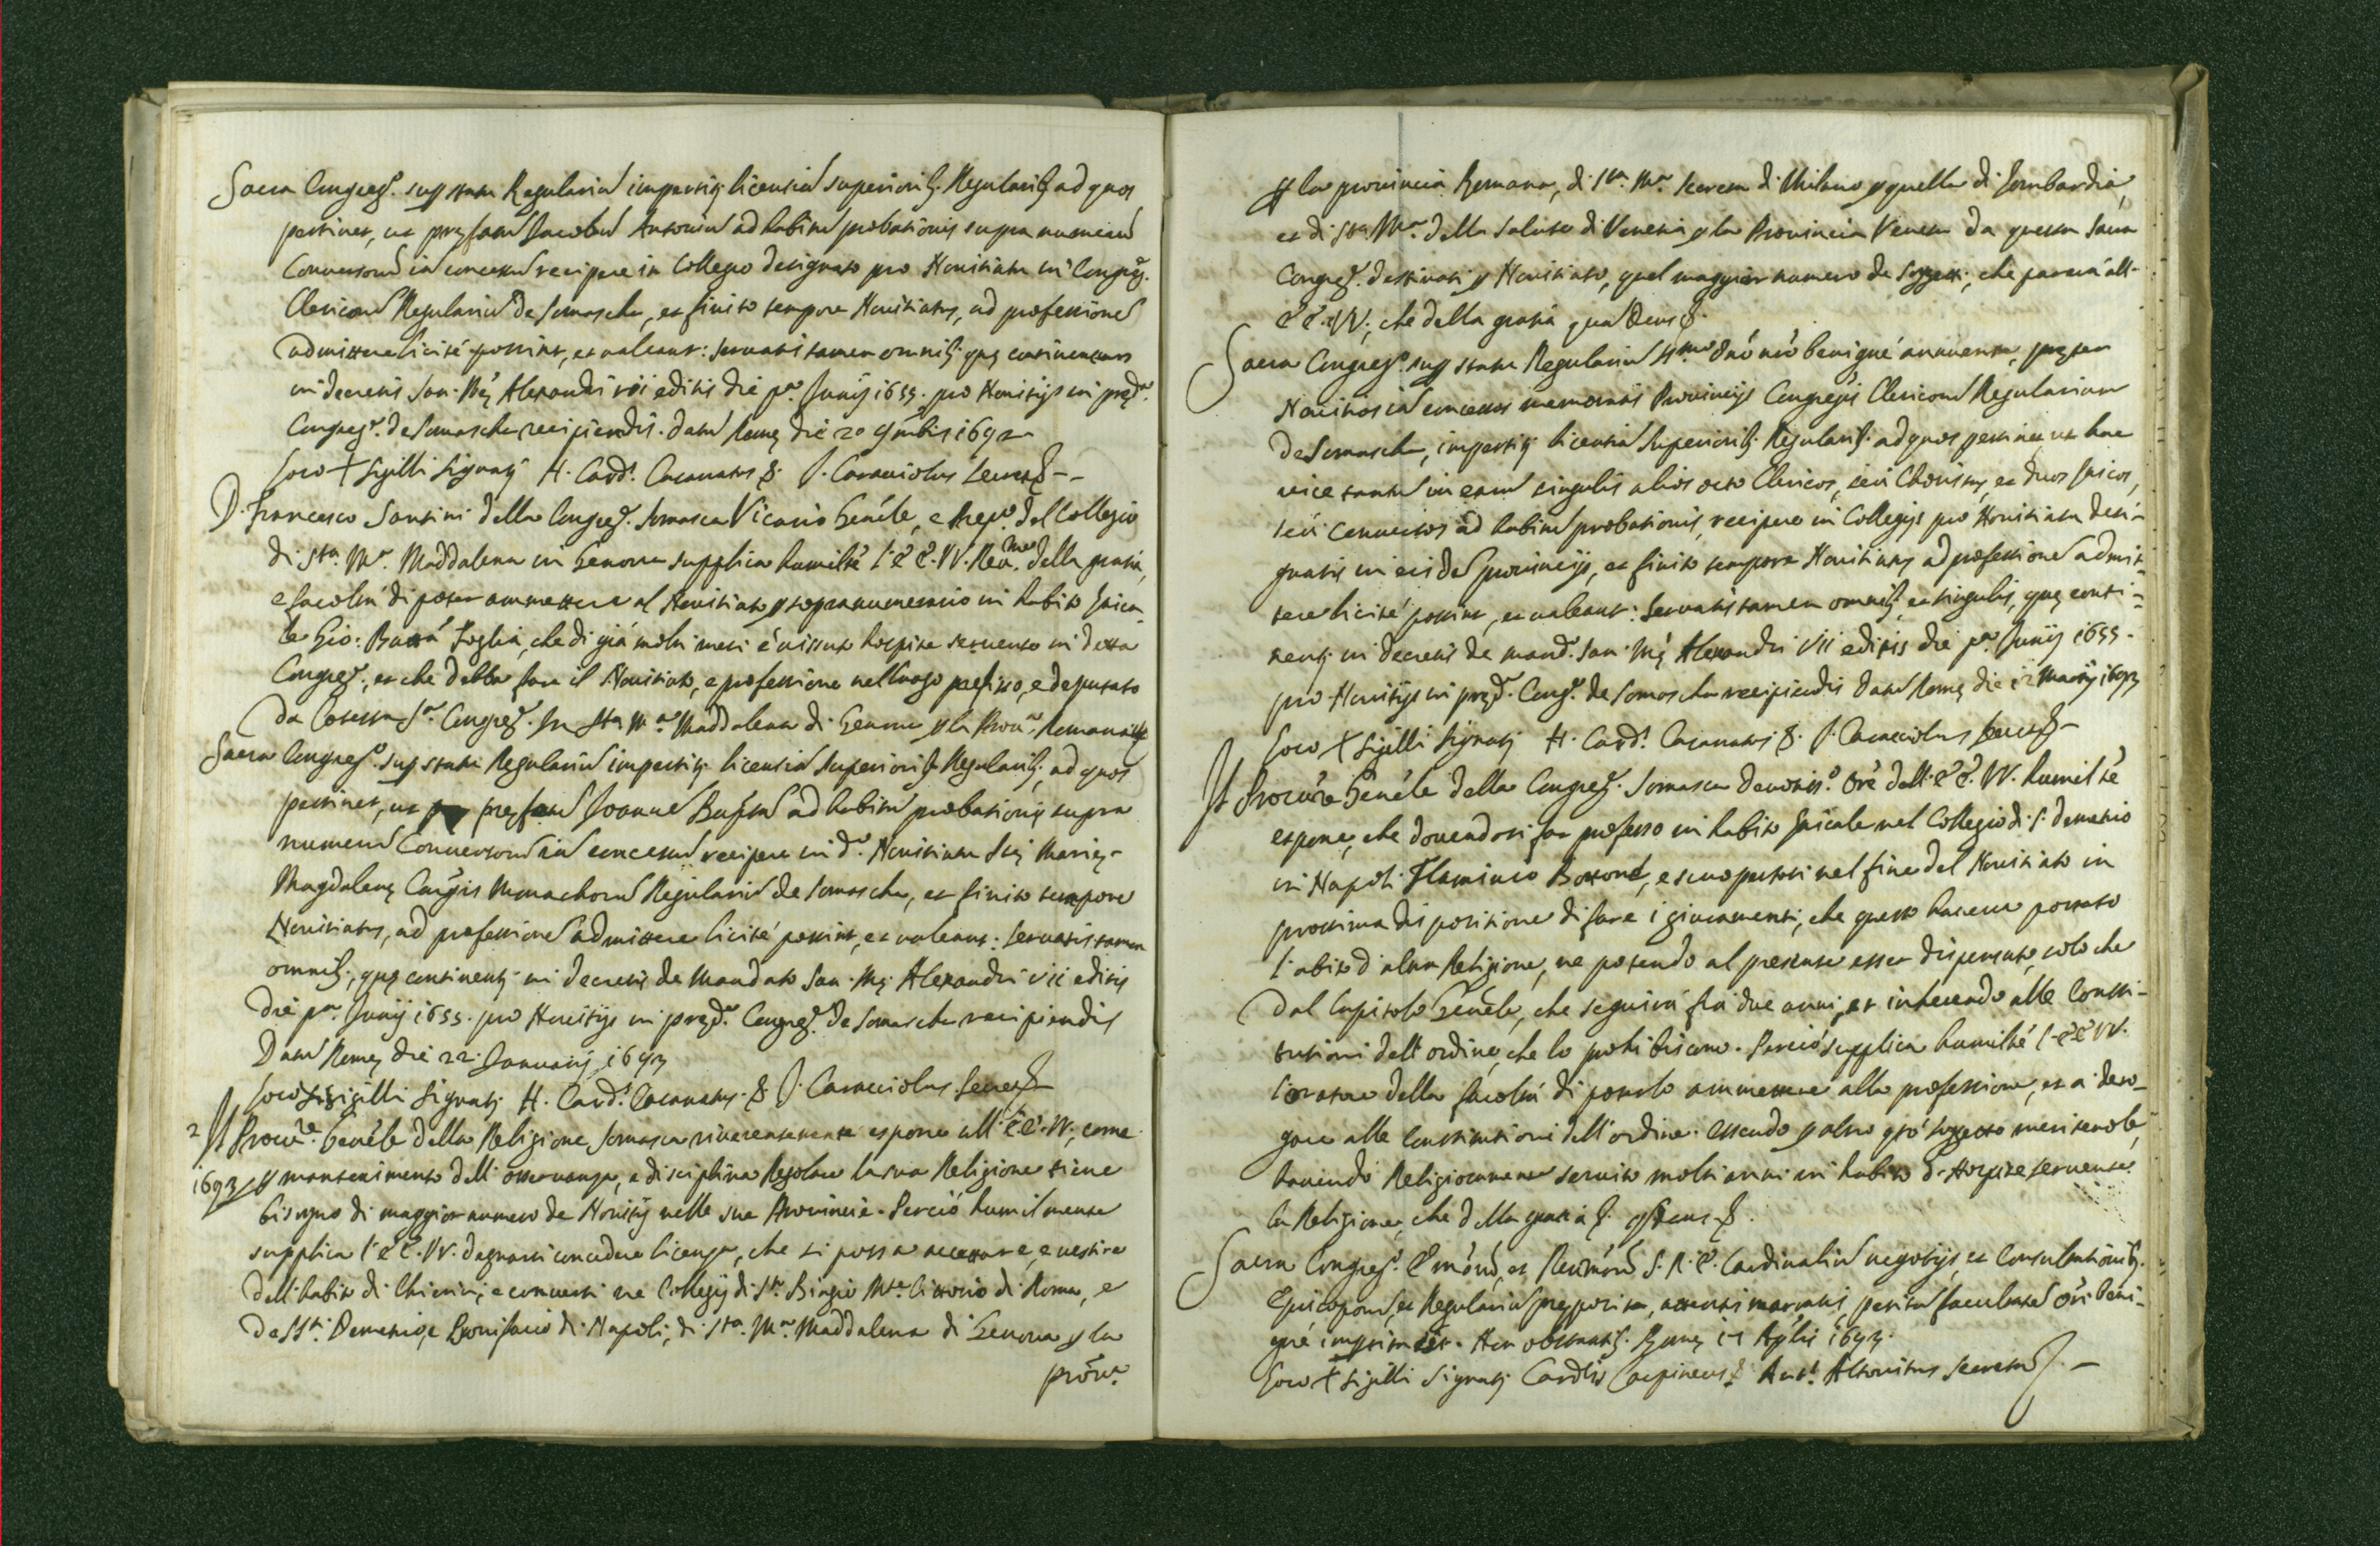 Sacra Congreg.º sup statu Regulariũ impertitʒ licentiã superioribʒ Regularibʒ ad quos
pertinet, ut pręfatũ Jacobũ Antoniũ ad habitũ probationis supra numerũ
Conversorũ iã concessũ recipere in Collegio designato pro Novitiatu in Congreg.
Clericorũ Regulariũ de Somascha, et finito tempore Novitiatus, ad professionẽ
admittere licitè possint, et valeant: servatis tamen omnibʒ quę continentur
in decretis San: Mẽ: Alexandri vii editis die p.ª Junij 1655. pro Novitijs in pręd.ª
Congreg.ᵉ de Somascha recipiendis. Datũ Romę die 20 9mbris 1692
Loco + Sigilli Signatʒ H. Card.ˢ Casanatus &. J. Caracciolus Secret.
D. Francesco Santini della Congreg.ᵉ Somasca Vicario Genẽle, e Prep.º del Collegio
di S.ta M.ª Maddalena in Genova supplica humiltẽ l' E E. VV. Rev.me della gratia,
e facoltà di poter ammettere al Novitiato p sopranumerario in habito laica-
le Gio: Battã Foglia, che di già molti mesi è vissuto hospite servente in detta
Congreg.ᵉ, et che debba fare il Novitiato, e professione nel luogo prefisso, e deputato
da Cotesta S.ª Congreg.ᵉ in S.ta M.ª Maddalena di Genova p la Prov.ª Romana &
Sacra Congreg.º sup statu Regulariũ impertitʒ licentiã superioribʒ Regularibʒ, ad quos
pertinet, ut pręfatũ Joannẽ Baptam ad habitũ probationis supra
numerũ Conversorũ iã concessũ recipere in d.º Novitiatu Stę Marię
Magdalenę Congñis Monachorũ Regulariũ de Somascha, et finito tempore
Novitiatus, ad professionẽ admittere licitè possint, et valeant: servatis tamen
omnibʒ, quę continentʒ in decretis de mandato San. Mẽ. Alexandri vii editis
die p.ª Junij 1655. pro Novitijs in pręd.ª Congreg.ᵉ de Somascha recipiendis
Datũ Romę die 22. Januarij 1693
Loco Sigilli Signatʒ H. Card.ˢ Casanatus. & J. Caracciolus Secret.
2 Il Procur.re Genẽle della Religione Somasca riverentemente espone all' E.E. VV, come
1693 p mantenimento dell' osservanza, e disciplina Regolare la sua Religione tiene
bisogno di maggior numero de Novitij nelle sue Provincie. Perciò humilmente
supplica l' E E. VV. degnarsi concedere licenza, che si possa accettare, e vestire
dell' habito di Chierici, e conversi ne Collegij di S.ᵗᵒ Biagio M.te Citorio di Roma, e
de SS.ti Demetrio, e Bonifacio di Napoli, di S.ta M.ª Maddalena di Genova p la
prov.ª
p la provincia Romana, di S.ta M.ª Secreta di Milano p quella di Lombardia,
et di S.ta M.ª della Salute di Venetia p la Provincia Veneta da questa Sacra
Congreg.ᵉ destinati p Novitiato, quel maggior numero de soggetti, che parerà all-
E E. VV, che della gratia quã Deus &.
Sacra Congreg.º sup statu Regulariũ SS.mo Dnõ nrõ benignè annuente, pręter
Novitios iã concessos memoratis Provincijs Congregñis Clericorũ Regularium
de Somascha, impertitʒ licentiã Superioribʒ Regularibʒ ad quos pertinet, ut hac
vice tantũ in earũ singulis alios octo Clericos, seù Choristas, et duos laicos,
seù conversos ad habitũ probationis, recipere in Collegijs pro Novitiatu desi-
gnatis in eisdẽ provincijs, et finito tempore Novitiatus ad professionẽ admit-
tere licitè possint, et valeant: servatis tamen omnibʒ et singulis, quę conti-
nentʒ in decretis de mand.º San. Mẽ. Alexandri VII editis die p.ª Junij 1655.
pro Novitijs in pręd.ª Cong.ᵉ de Somascha recipiendis Datũ Romę die 12 Martij 1693
Loco + Sigilli Signatʒ H. Card.ˢ Casanatus &. J. Caracciolus Secret.
Il Procur.re Genẽle della Congreg.ᵉ Somasca devotis.º Orẽ dell' E E. VV. humiltẽ
espone, che dovendosi far professo in habito laicale nel Collegio di S. Demetrio
in Napoli Flaminio Bottone, e scuopertosi nel fine del Novitiato in
prossima dispositione di fare i giuramenti, che questo haveva portato
l'abito d'altra Religione, ne potendo al presente esser dispensato, solo che
dal Capitolo Genẽle, che seguirà frà due anni, et inherendo alle Consti-
tutioni dell' ordine, che lo prohibiscono. Perciò supplica humiltẽ l' E E VV.
l'oratore della facoltà di poterlo ammettere alla professione, et a dero-
gare alle Constitutioni dell' ordine. essendo p altro qtõ soggetto meritevole,
havendo Religiosamente servito molti anni in habito d'Hospite servente
la Religione, che della gratia &. qs Deus &.
Sacra Congreg.º Emõrũ, et Revmõrũ S. R. E. Cardinaliũ negotijs, et Consultationibʒ
Episcoporũ, et Regulariũ pręposita, attentis narratis, petitã facultatẽ Ori beni-
gnè impertitʒ. Non obstantibʒ. Romę 17 Aplis 1693.
Loco + Sigilli Signatʒ Cardlis Carpineus &. Ant.ˢ Altovitus Secret.